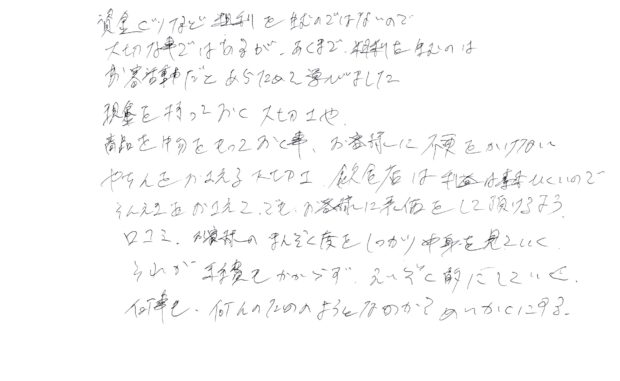 資金ぐりなど粗利を生むのではないので
大切な事ではあるが、あくまで、粗利を生むのは
お客活動だとあらためて学びました
現金を持っておく大切さや、
商品を中身をもっておく事、お客様に不便をかけない
やちんをおさえる大切さ、飲食店は利益は事もひくいので
そんえきをおさえて、でも、お客様に来価をして頂けるよう
口コミ、お客様のまんぞく度をしっかり中身を見ていく
それが 手を費もかからず、えいぞく的にしていく、
何事も、何んのためのようとなのか?めいかくにする。